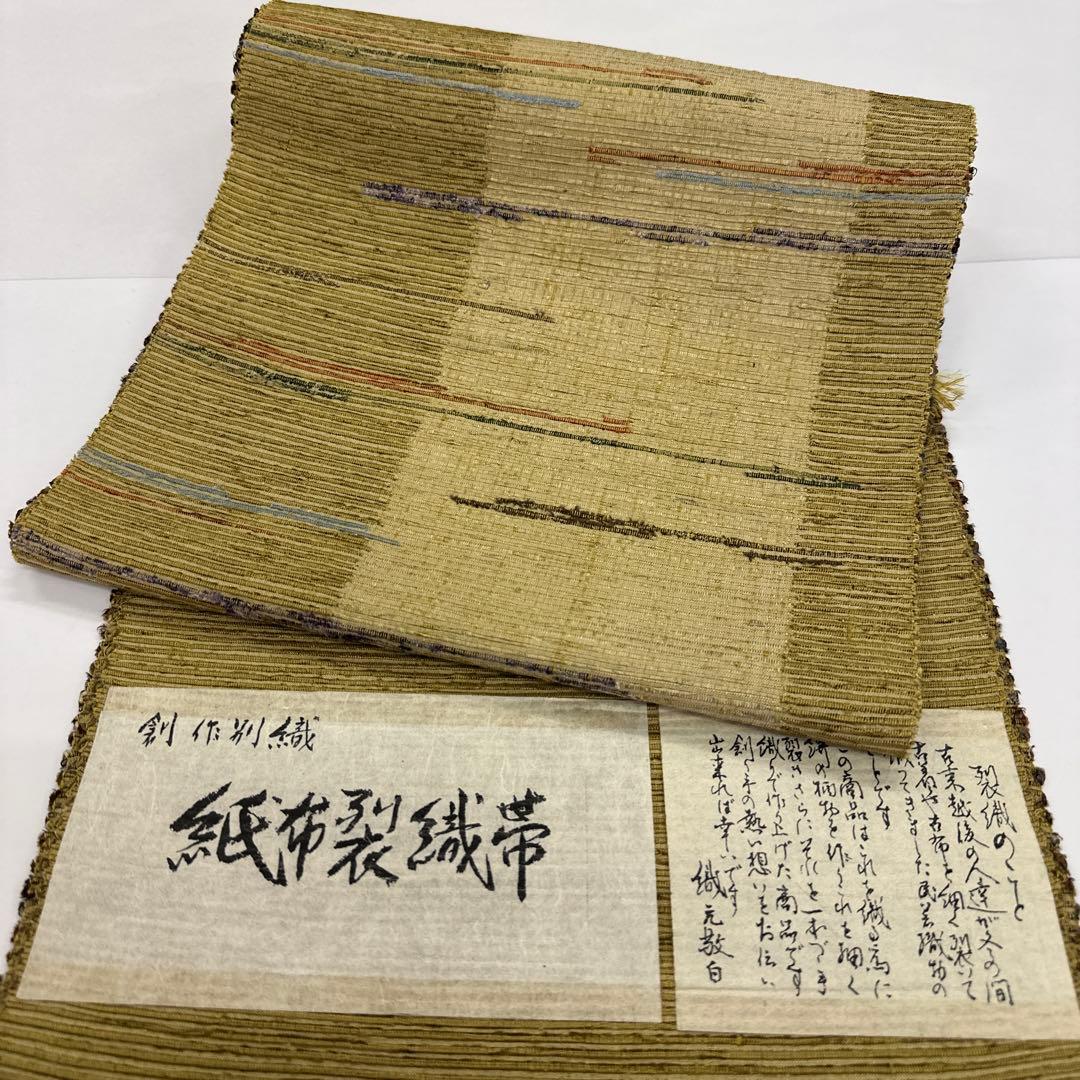 創作別織
紙布裂織帯
裂織のこと
古来越後の人達が冬の間
古着や古布を細く裂いて
ってきました民芸織物の
ことです
この商品はこれを織る為に
絣の柄物を作りこれを細く
裂きさらにそれを一本づつ手
織りで作り上げた商品です
創り手の熱い想いをお伝い
出来れば幸いです
織元敬白